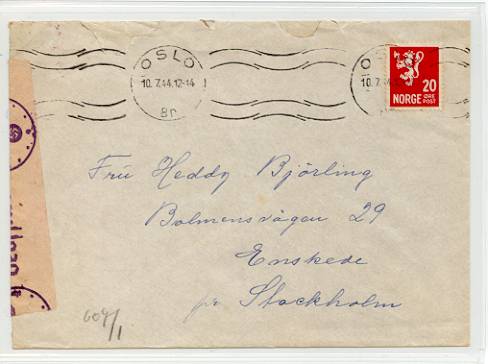 OSLO
10.7.44.12-14
Br
OS
10.7.44
20
NORGE ØRE
POST
Fru Heddy Björling
Bolmensvägen 29
Enskede
pr Stockholm
604/1